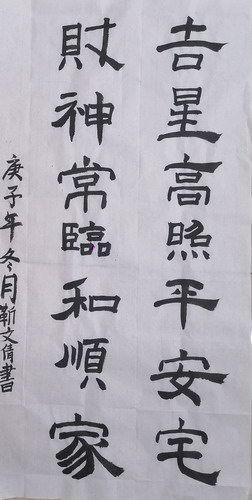 吉星高照平安宅
財神常臨和順家
庚子年冬月靳文倩書